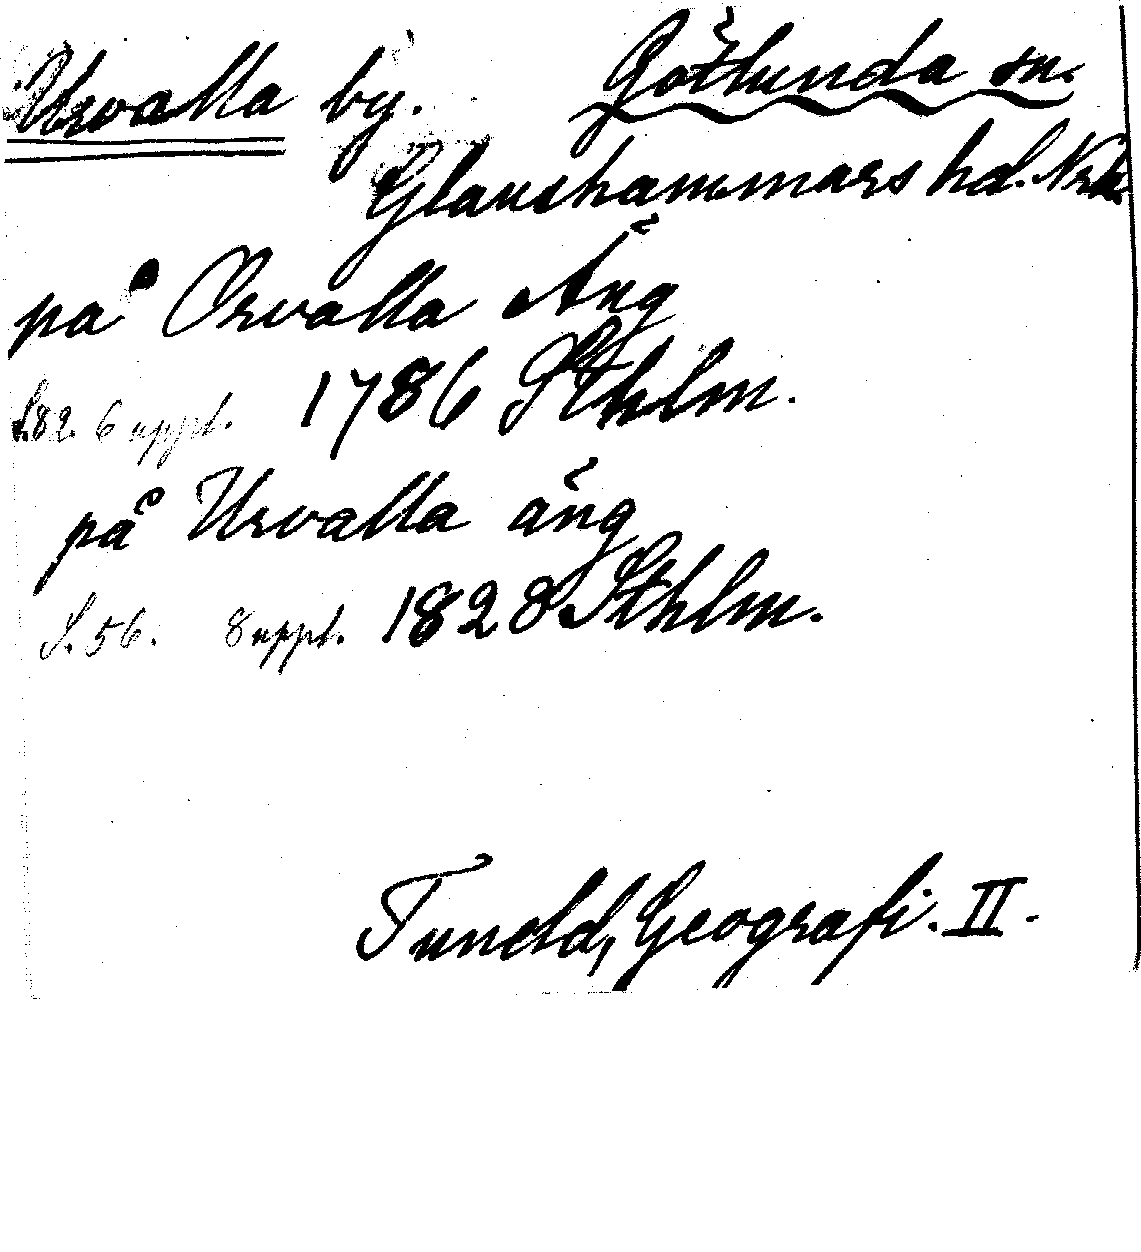 Urvalla by. Götlunda sn.
Glanshammars hd. Nrke.
på Orvalla Äng
S.82. 6 uppl. 1786 Sthlm.
på Urvalla äng
S.56. 8 uppl. 1828 Sthlm.
Tuneld, Geografi. II.